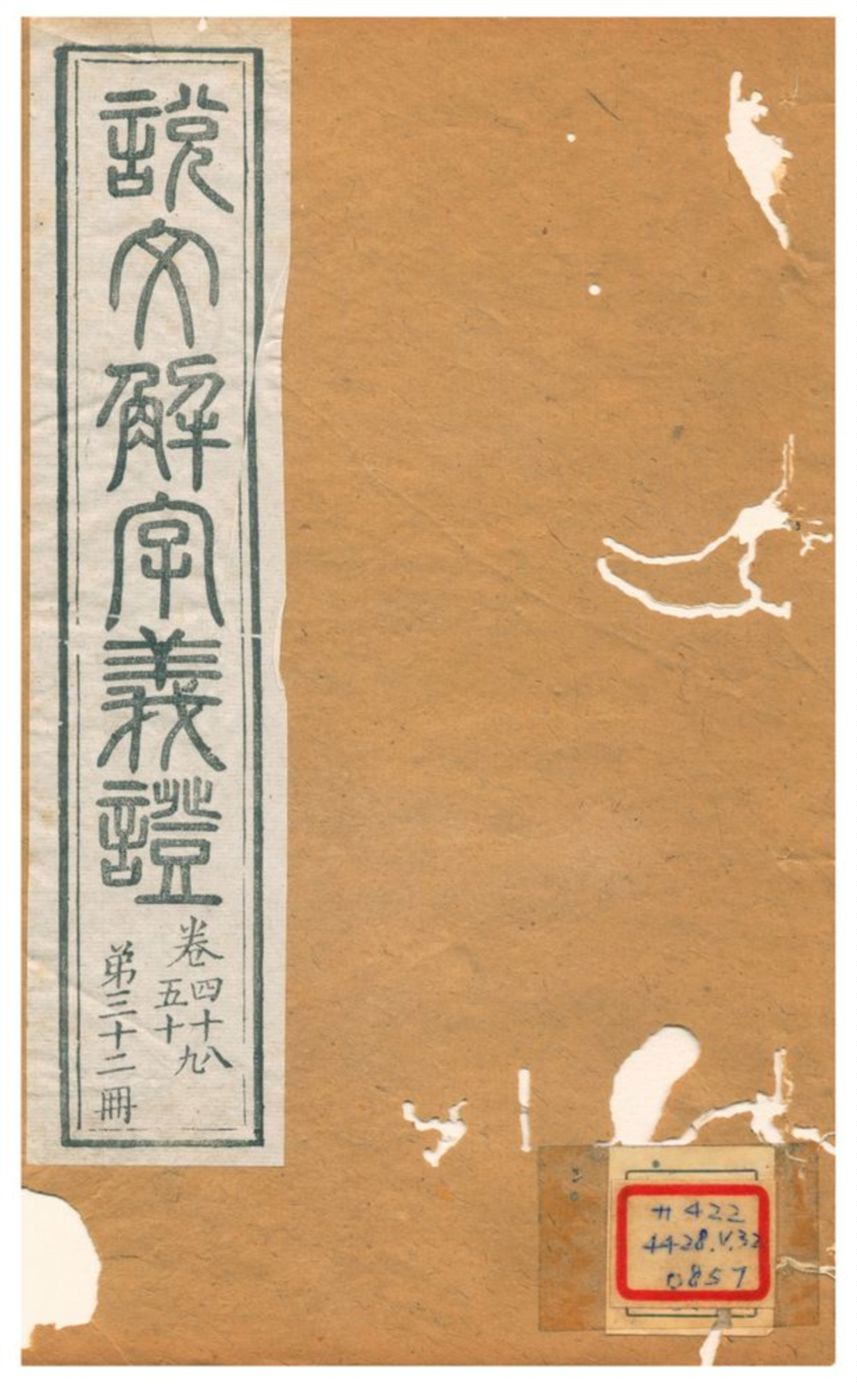 說文解字義證
卷四十九八
五十
第三十二冊
422
4428.V.32
0857